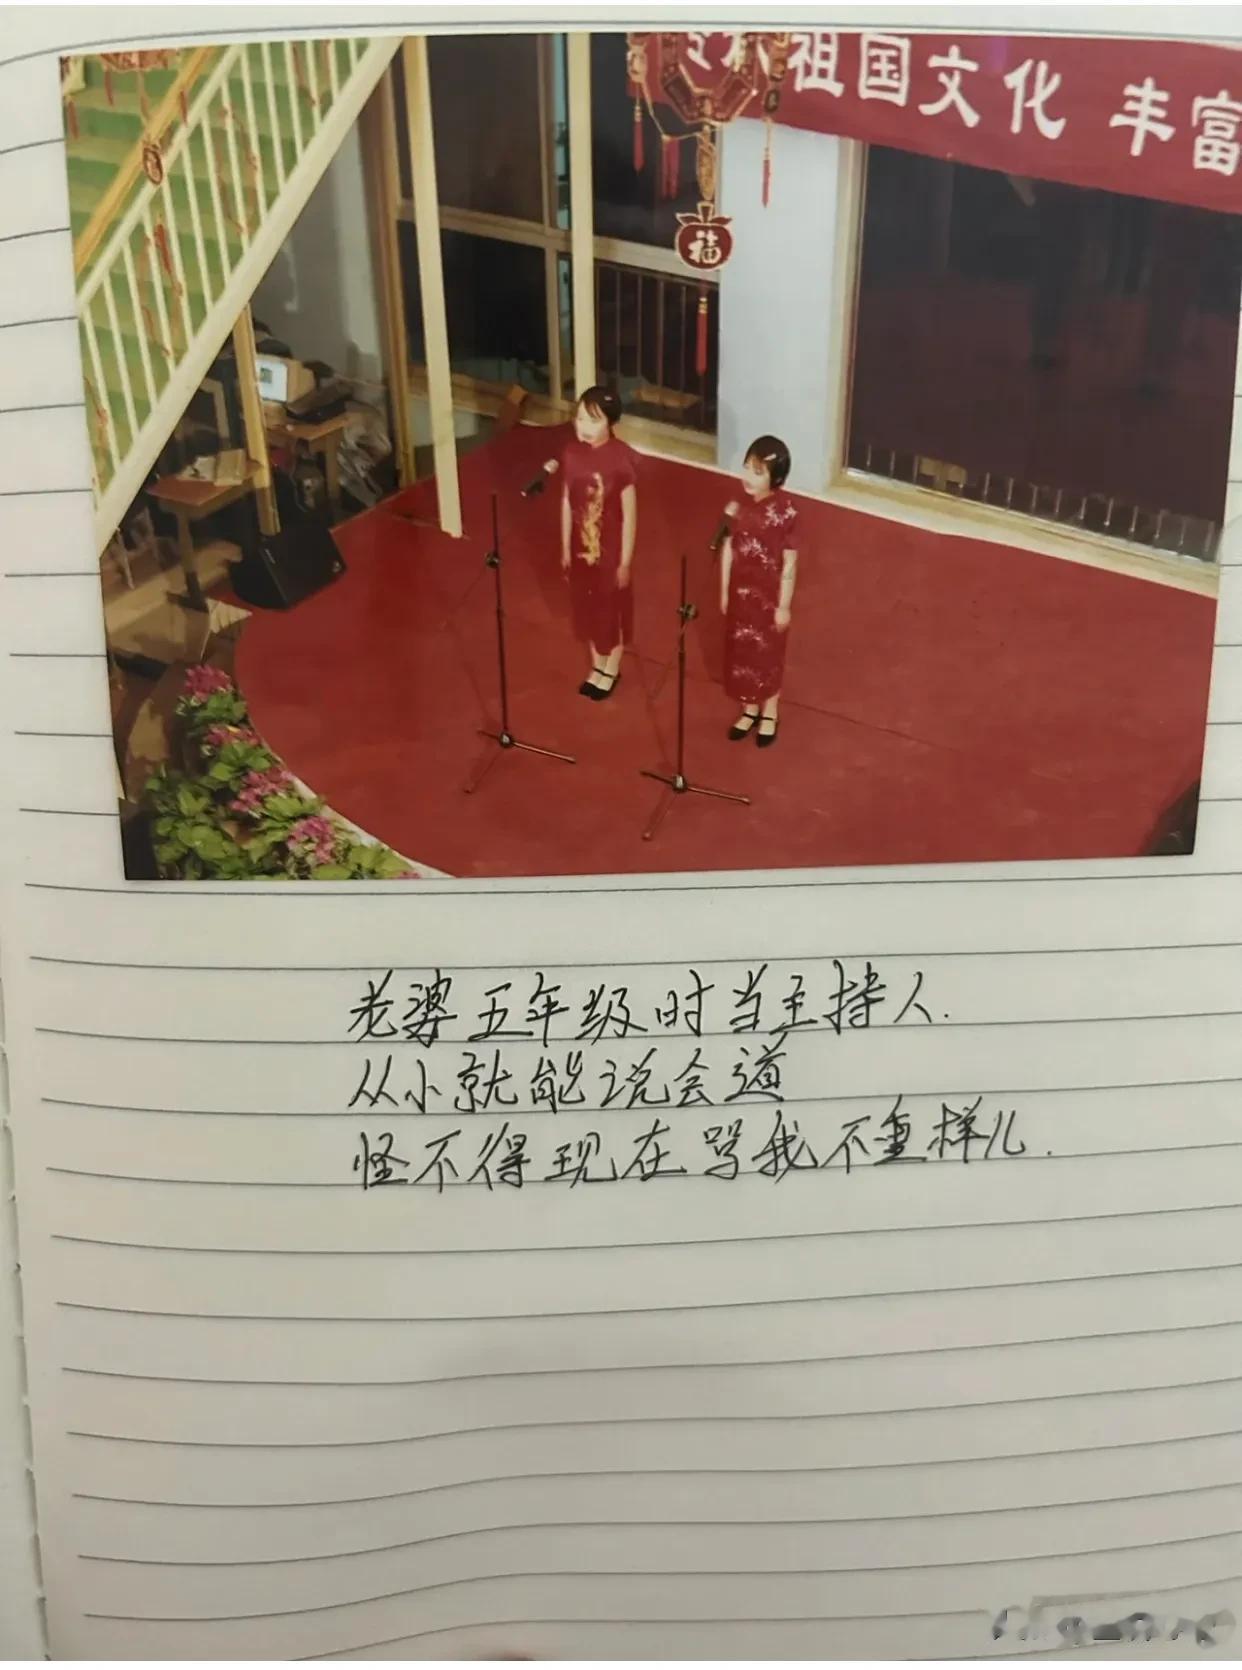 祖国文化 丰富
福
老婆五年级时当主持人.
从小就能说会道
怪不得现在骂我不重样儿.